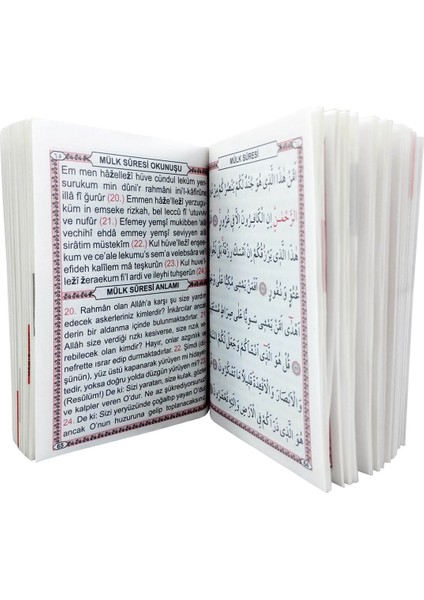 MÜLK SÛRESİ OKUNUŞU
Em men hâżelleżî hüve cündul leküm yen-
surukum min dûni'r rahmâni ini'l-kâfirûne
illâ fî ğurûr (20.) Emmen hâżelleżî yerzugu-
küm in emseke rizkah, bel leccû fî 'utuvviv
ve nufûr (21.) Efemey yemşî mukibben 'alâ
vechihî ehdâ emmey yemşî seviyyen alâ
sirâtim müstekîm (22.) Kul hüve'lleżî enşee-
kum ve ce'ale lekumu's sem'a velebsâra vel
efideh kalîlem mâ teşkurûn (23.) Kul hüve'l-
leżî żeraekum fi'l ardi ve ileyhi tuhşerûn (24.)
MÜLK SÛRESİ ANLAMI
20. Rahmân olan Allâh'a karşı şu size yardım
edecek askerleriniz kimlerdir? İnkârcılar ancak
derin bir aldanma içinde bulunmaktadırlar.
Allâh size verdiği rızkı kesiverse, size rızık
verebilecek olan kimdir? Hayır, onlar azgınlık
nefrette ısrar edip durmaktadırlar. 22. Şimdi
yüz üstü kapanarak yürüyen mi hi-
tedir, yoksa doğru yolda düzgün yürüyen mi?
(Resûlüm!) De ki: Sizi yaratan, size kulak, göz
ve kalpler veren O'dur. Ne az şükrediyorsunuz!
24. De ki: Sizi yeryüzünde çoğaltıp yayan O'dur
ancak O'nun huzuruna gelip toplanacaksınız.
MÜLK SÛRESİ
أَمَّنْ هٰذَا الَّذِي هُوَ جُنْدٌ لَكُمْ يَنْصُرُكُمْ مِنْ دُونِ
الرَّحْمٰنِ إِنِ الْكَافِرُونَ إِلَّا فِي غُرُورٍ أَمَّنْ
هٰذَا الَّذِي يَرْزُقُكُمْ إِنْ أَمْسَكَ رِزْقَهُ بَلْ لَجُّوا فِي
عُتُوٍّ وَنُفُورٍ أَفَمَنْ يَمْشِي مُكِبًّا عَلَى وَجْهِهِ
أَهْدَى أَمَّنْ يَمْشِي سَوِيًّا عَلَى صِرَاطٍ مُسْتَقِيمٍ
قُلْ هُوَ الَّذِي أَنْشَأَكُمْ وَجَعَلَ لَكُمُ السَّمْعَ
وَالْأَبْصَارَ وَالْأَفْئِدَةَ قَلِيلًا مَا تَشْكُرُونَ قُلْ
هُوَ الَّذِي ذَرَأَكُمْ فِي الْأَرْضِ وَإِلَيْهِ تُحْشَرُونَ